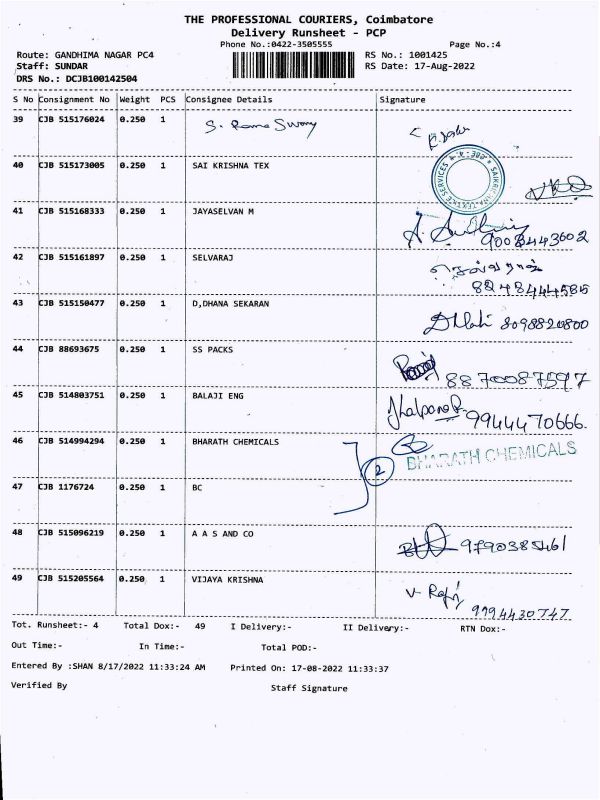 THE PROFESSIONAL COURIERS, Coimbatore
Delivery Runsheet - PCP
Phone No.:0422-3505555 Page No.:4
Route: GANDHIMA NAGAR PC4 RS No.: 1001425
Staff: SUNDAR RS Date: 17-Aug-2022
DRS No.: DCJB100142504
S No Consignment No Weight PCS Consignee Details Signature
39 CJB 515176024 0.250 1 S. Rama Swamy
40 CJB 515173005 0.250 1 SAI KRISHNA TEX
41 CJB 515168333 0.250 1 JAYASELVAN M
9003443602
42 CJB 515161897 0.250 1 SELVARAJ
8248444585
43 CJB 515150477 0.250 1 D,DHANA SEKARAN
8098820800
44 CJB 88693675 0.250 1 SS PACKS
8870087597
45 CJB 514803751 0.250 1 BALAJI ENG
9944470666
46 CJB 514994294 0.250 1 BHARATH CHEMICALS
2 BHARATH CHEMICALS
47 CJB 1176724 0.250 1 BC
48 CJB 515096219 0.250 1 A A S AND CO
9790385461
49 CJB 515205564 0.250 1 VIJAYA KRISHNA
9994430747
Tot. Runsheet:- 4 Total Dox:- 49 I Delivery:- II Delivery:- RTN Dox:-
Out Time:- In Time:- Total POD:-
Entered By :SHAN 8/17/2022 11:33:24 AM Printed On: 17-08-2022 11:33:37
Verified By Staff Signature